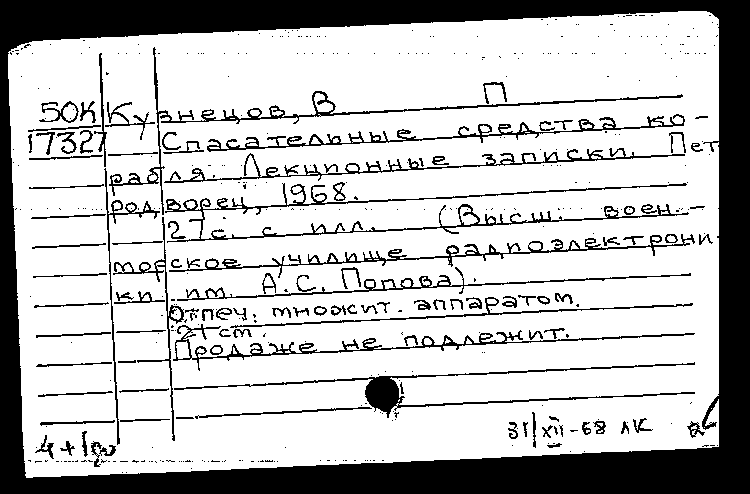 50К Кузнецов, В П
17327 Спасательные средства ко-
рабля. Лекционные записки. Пет
родворец, 1968.
27с. с илл. (Высш. воен.-
морское училище радиоэлектрони-
ки им. А.С. Попова).
Отпеч. множит. аппаратом.
21 см.
Продаже не подлежит.
31/XII-68 ЛК